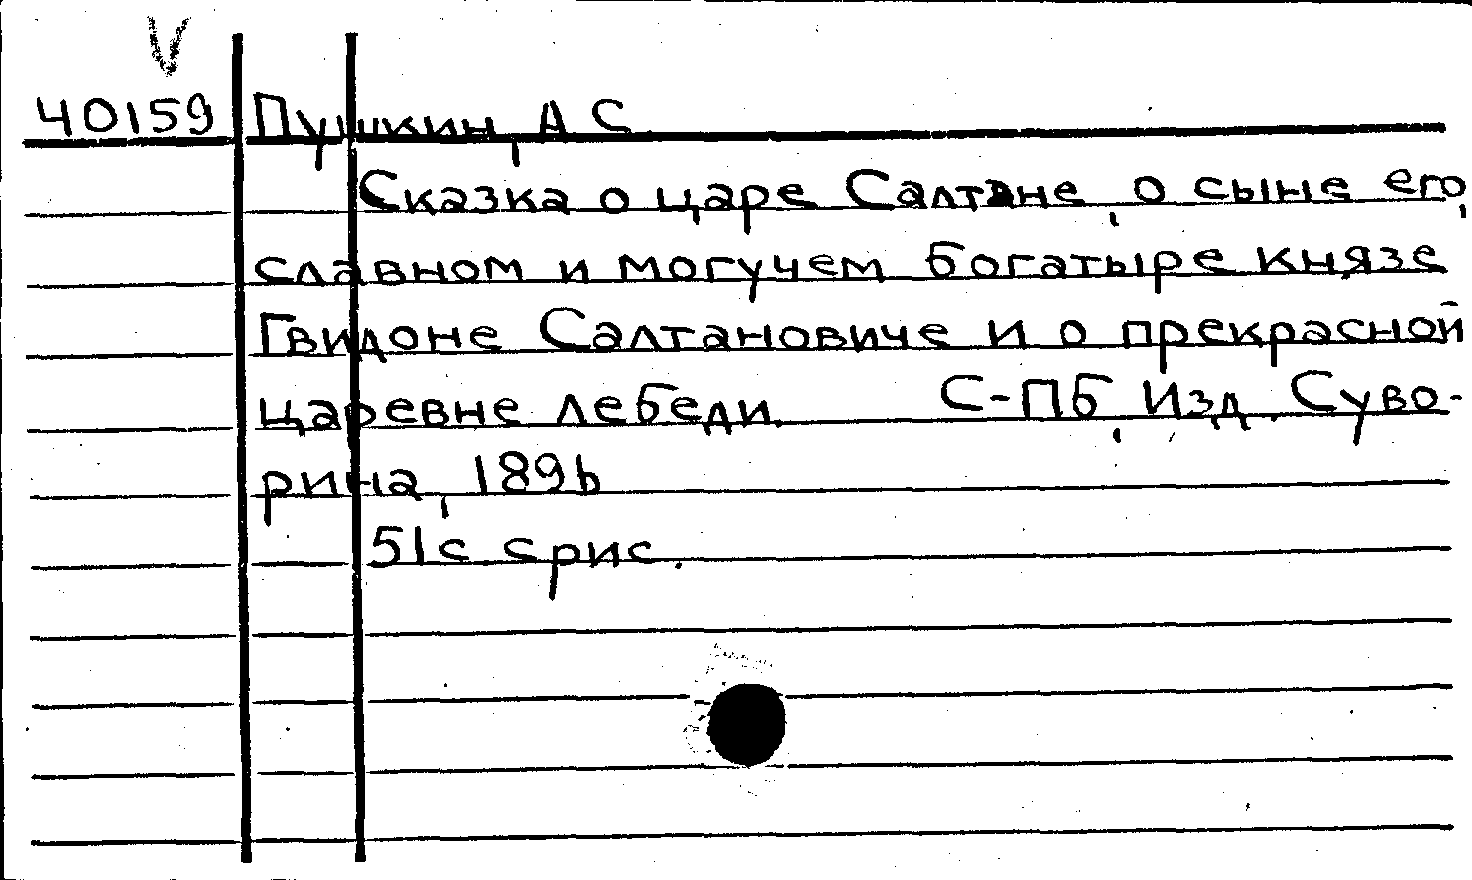 V
40159 Пушкин, А С
Сказка о царе Салтане, о сыне его,
славном и могучем богатыре князе
Гвидоне Салтановиче и о прекрасной
царевне лебеди. С-ПБ, Изд. Суво-
рина, 1896
51с с рис.